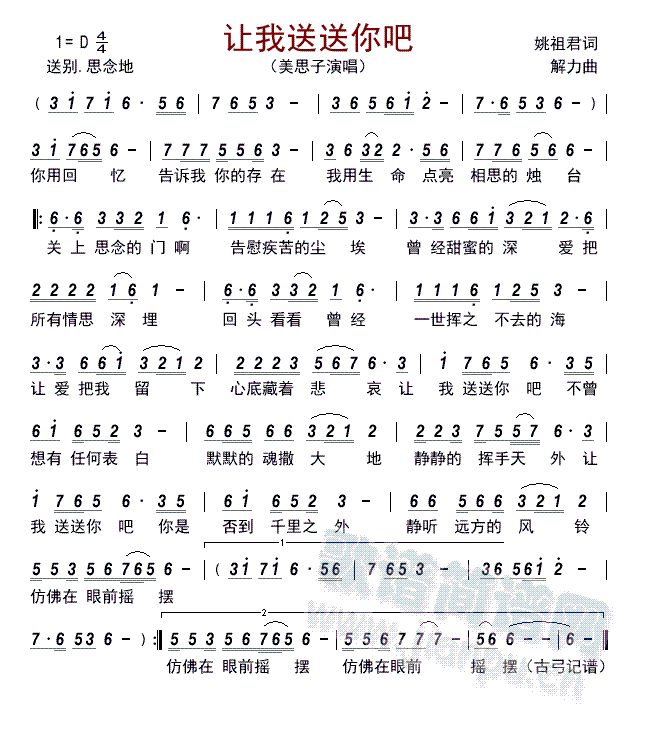 让我送送你吧
1= D 4/4
姚祖君词
送别.思念地
（美思子演唱）
解力曲
( 3 1 7 1 6· 5 6 | 7 6 5 3 - | 3 6 5 6 1 2 - | 7·6 5 3 6 - )|
3 1 7 6 5 6 - | 7 7 7 5 5 6 3 - | 3 6 3 2 2· 5 6 | 7 7 6 5 6 - |
你用回 忆 告诉我 你的存 在 我用生 命 点亮 相思的 烛 台
|: 6·6 3 3 2 1 6· | 1 1 1 6 1 2 5 3 - | 3·2 6 6 1 3 2 1 2·6 |
关 上 思念的 门啊 告慰疾苦的尘 埃 曾 经甜蜜的 深 爱把
2 2 2 2 1 6 1 - | 6·6 3 3 2 1 6· | 1 1 1 6 1 2 5 3 - |
所有情思 深 埋 回 头 看看 曾 经 一世挥之 不去的 海
3·3 6 6 1 3 2 1 2 | 2 2 2 3 5 6 7 6·3 | 1 7 6 5 6· 3 5 |
让 爱 把我 留 下 心底藏着 悲 哀 让 我 送送你 吧 不曾
6 1 6 5 2 3 - | 6 6 5 6 6 3 2 1 2 | 3 2 3 7 5 5 7 6·3 |
想有 任何表 白 默默的 魂撒 大 地 静静的 挥手天 外 让
1 7 6 5 6· 3 5 | 6 1 6 5 2 3 - | 6 6 5 6 6 3 2 1 2 |
我 送送你 吧 你是 否到 千里之 外 静听 远方的 风 铃
1
5 5 3 5 6 7 6 5 6 - | ( 3 1 7 1 6· 5 6 | 7 6 5 3 - | 3 6 5 6 1 2 - |
仿佛在 眼前摇 摆
2
7·6 5 3 6 - ) :| 5 5 3 5 6 7 6 5 6 - | 5 5 6 7 7 7 - | 5 6 6 - | 6 - |
仿佛在 眼前摇 摆 仿佛在眼前 摇 摆（古弓记谱）
歌谱简谱网